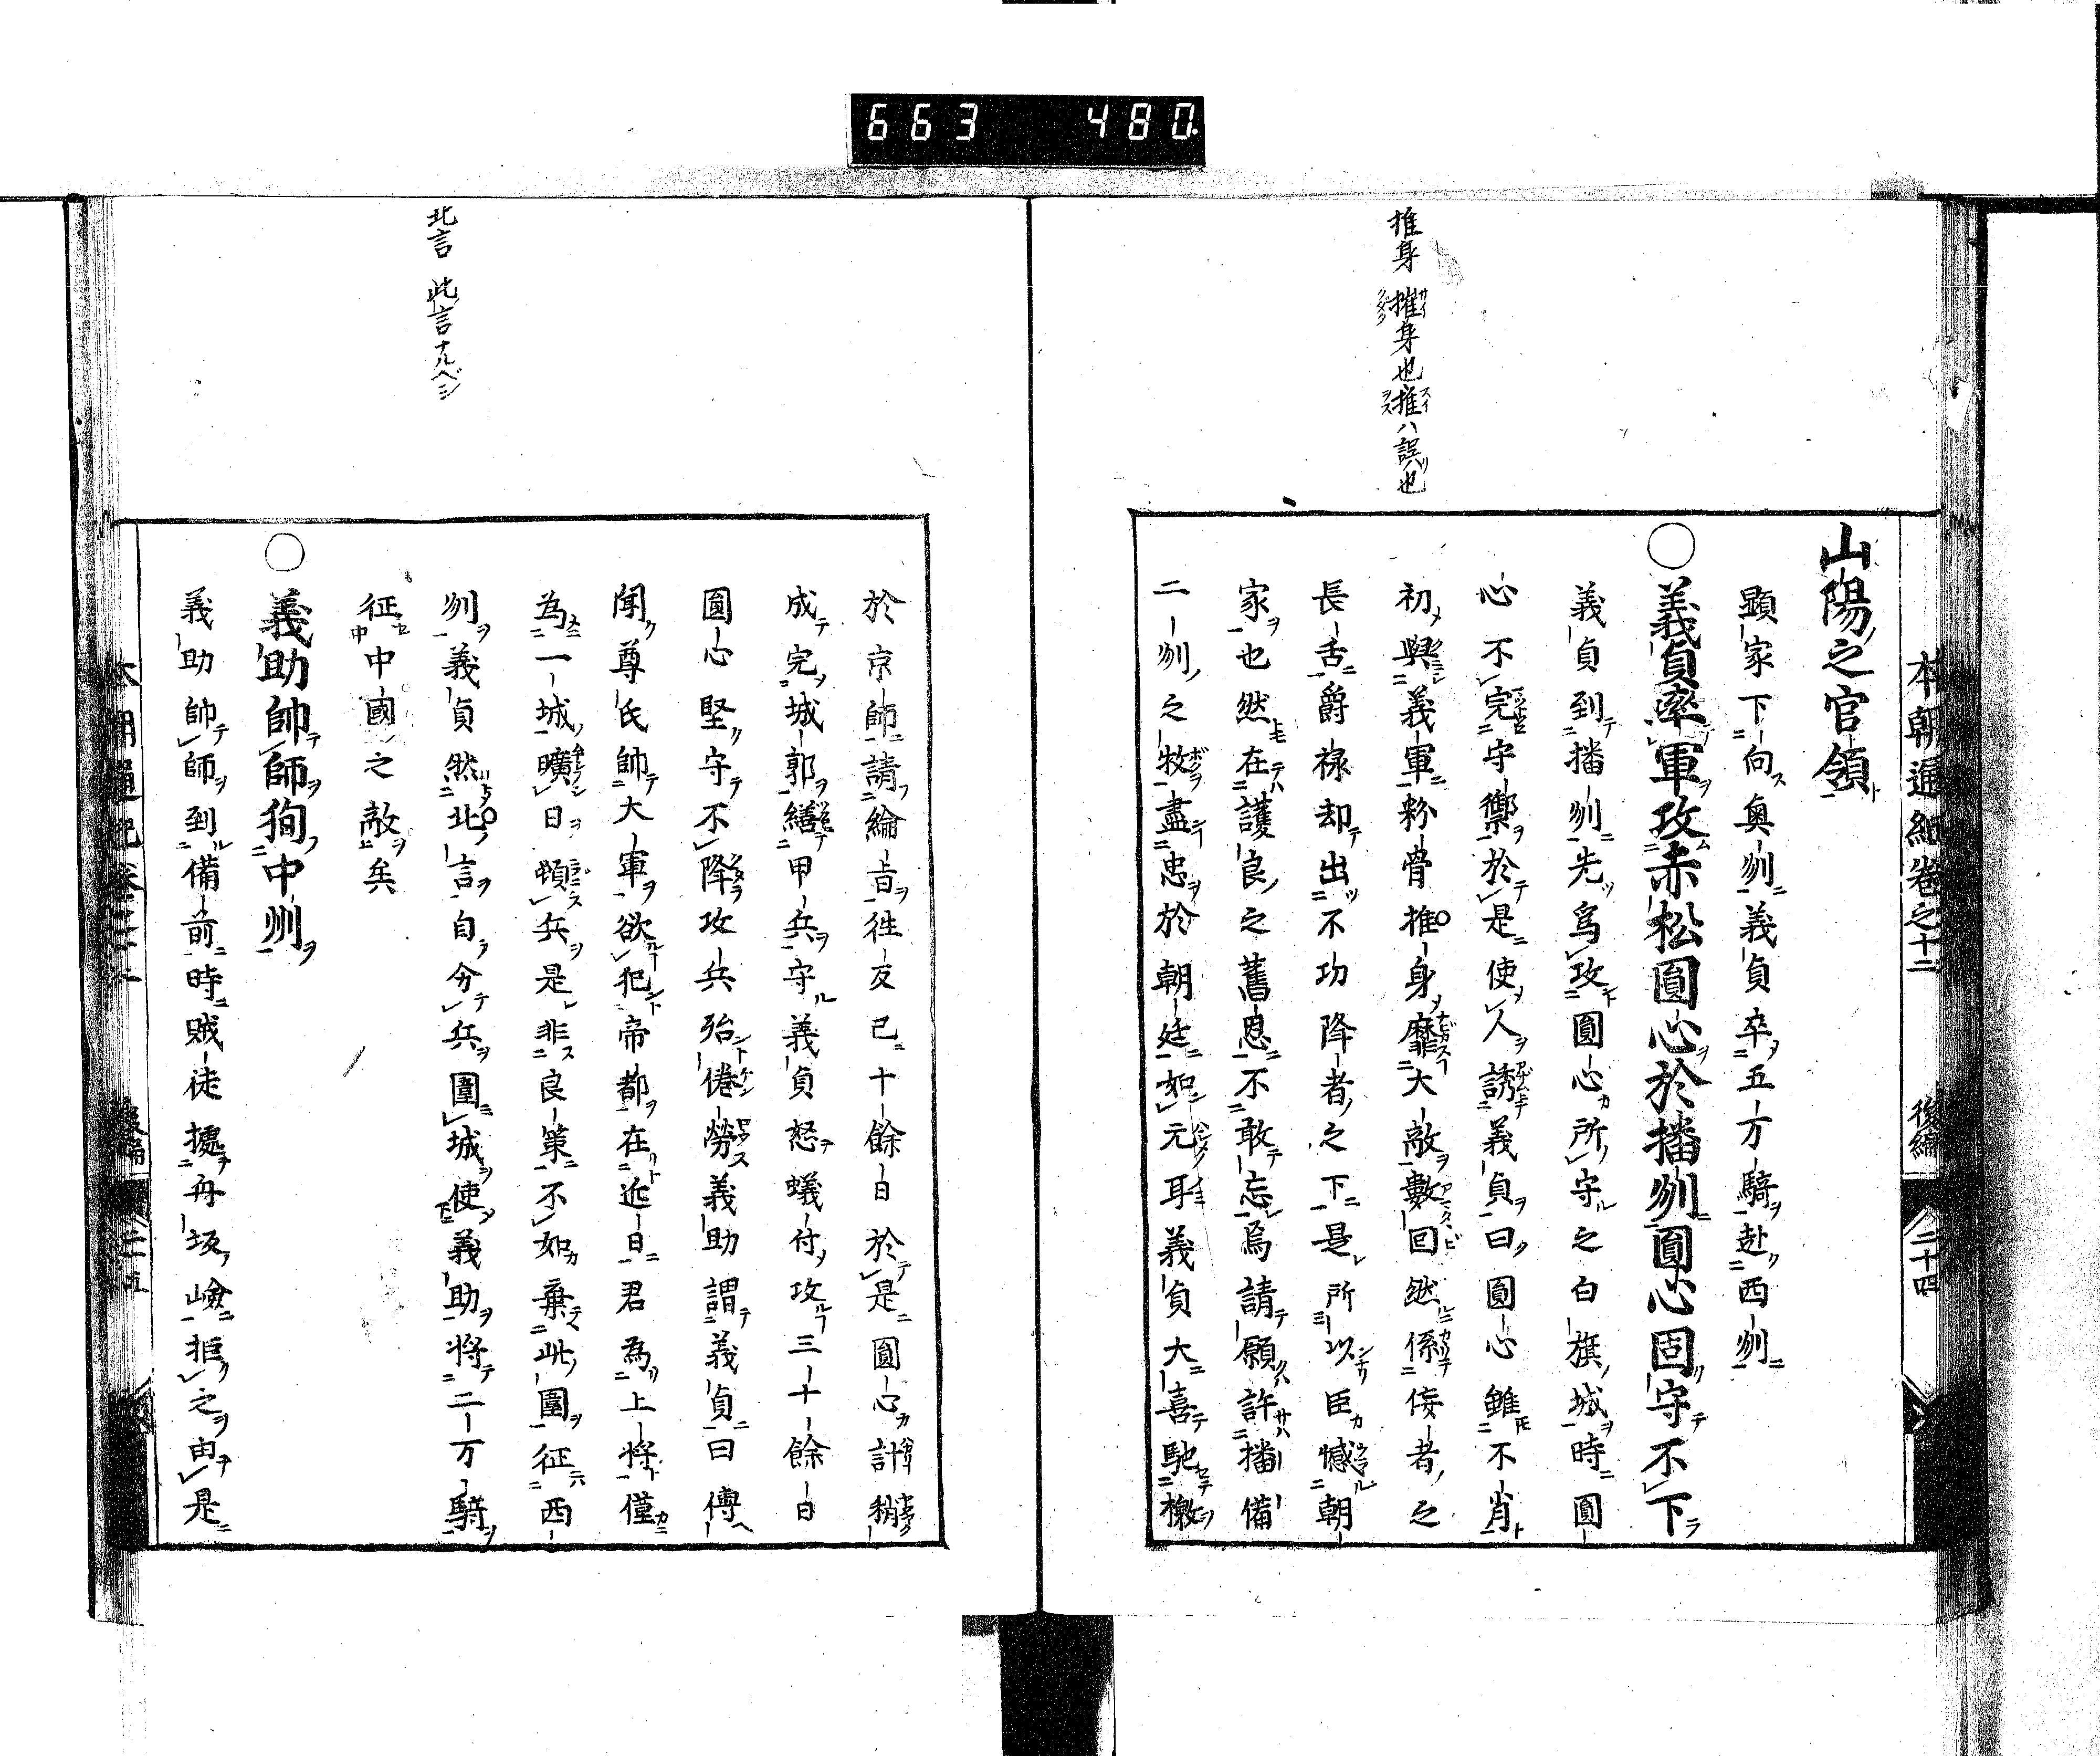 663 480
推身 摧身也推ハ誤也
本朝通紀卷之十二 後編 二十四
山陽之官領
顕家下向奥刕義貞卒五万騎赴西刕
○義貞率軍攻赤松圓心於播刕圓心固守不下
義貞到播刕先爲攻圓心所守之白旗城時圓
心不完守禦於是使人誘義貞曰圓心雖不肖
初興義軍粉骨推身靡大敵數回然係侫者之
長舌爵禄却出不功降者之下是所以臣憾朝
家也然在護良之舊恩不敢忘焉請願許播備
二刕之牧盡忠於朝廷如元耳義貞大喜馳檄
於京師請綸旨徃反已十餘日於是圓心計稍
成完城郭繕甲兵守義貞怒蟻付攻三十餘日
圓心堅守不降攻兵殆倦勞義助謂義貞曰傳
聞尊氏帥大軍欲犯帝都在近日君為上將僅
為一城曠日頓兵是非良策不如棄此圍征西
刕義貞然北言自分兵圍城使義助將二万騎
征中國之敵矣
○義助帥師徇中州
義助帥師到備前時賊徒據舟坂嶮拒之由是
北言 此言ナルベシ